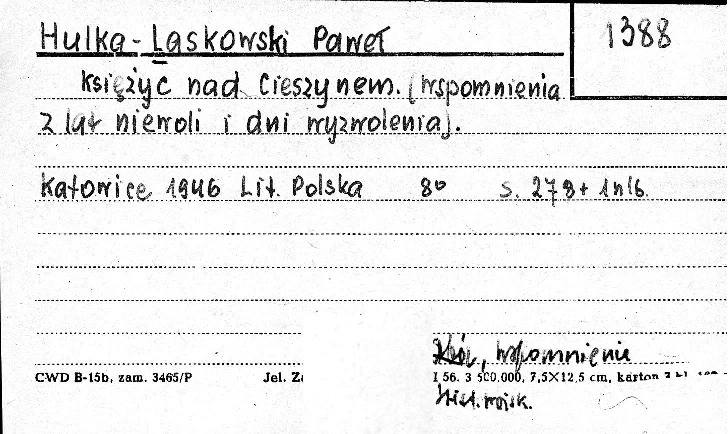 Hulka-Laskowski Paweł
1388
Księżyc nad Cieszynem. (Wspomnienia
z lat niewoli i dni wyzwolenia).
Katowice 1946 Lit. Polska 8° s. 278 + 1 nlb.
wspomnienie
CWD B-15b, zam. 3465/P Jel. Z
I 56. 3 500.000, 7,5×12,5 cm, karton
Hist. wojsk.